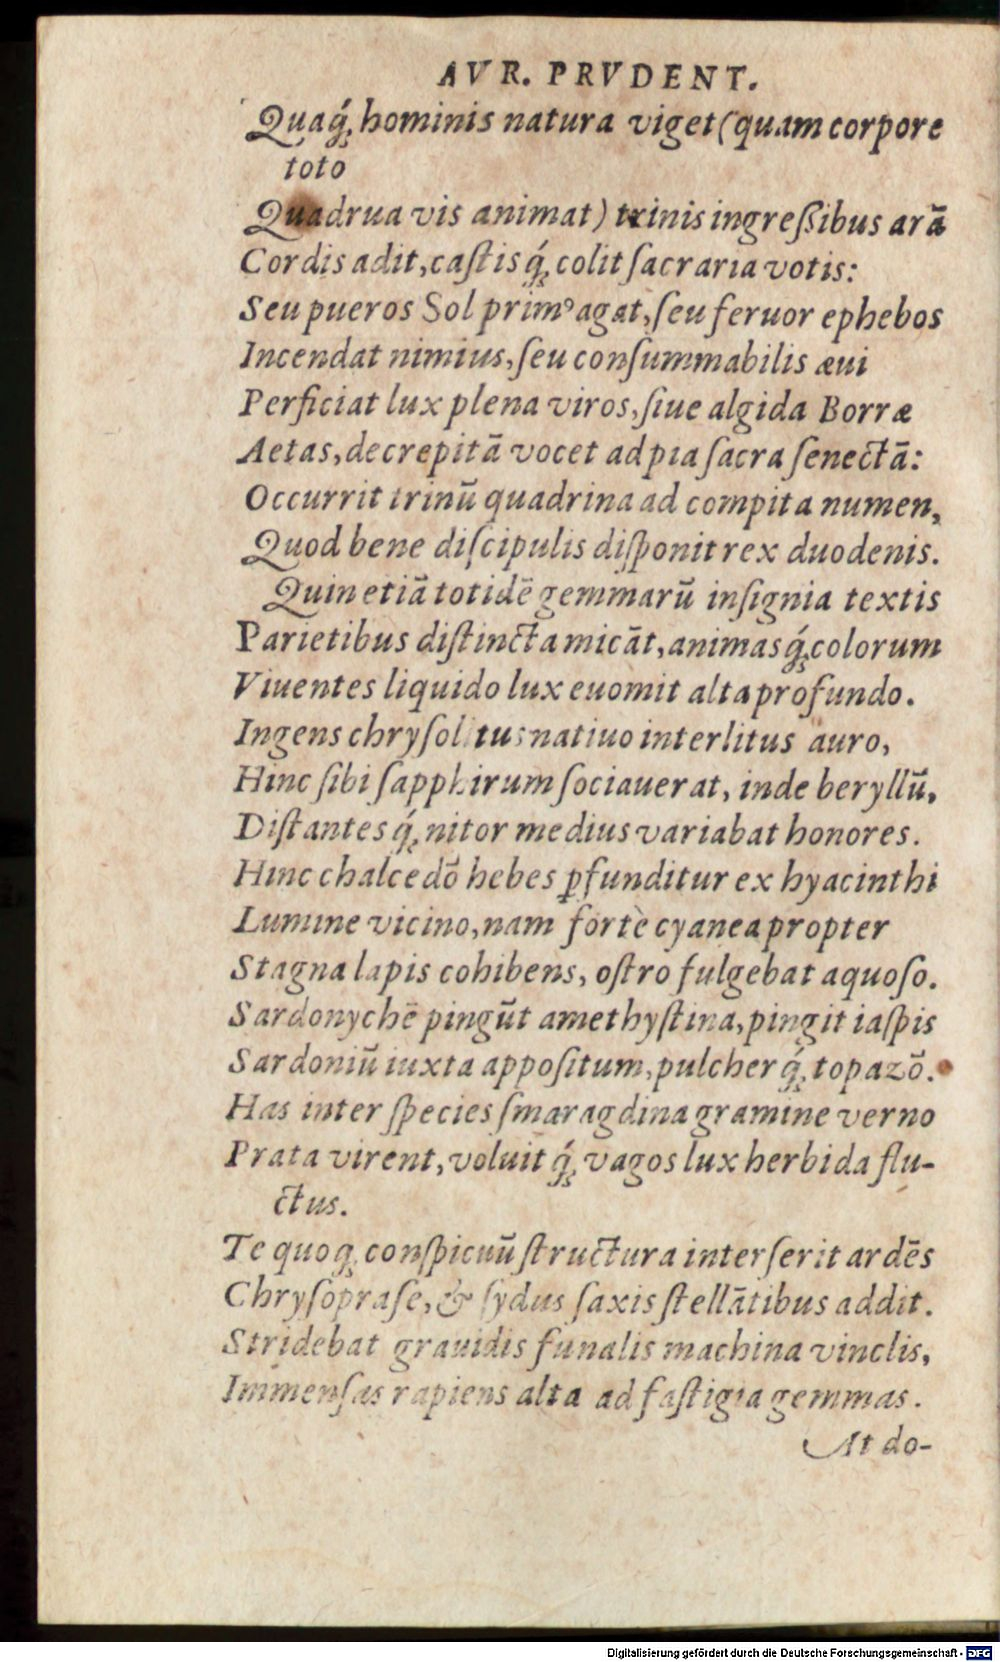 AVR. PRVDENT.
Quaq́ꝫ hominis natura viget (quam corpore
toto
Quadrua vis animat) trinis ingreſſibus arā
Cordis adit, caſtisq́ꝫ colit ſacraria votis:
Seu pueros Sol primꝰ agat, ſeu feruor ephebos
Incendat nimius, ſeu conſummabilis æui
Perficiat lux plena viros, ſiue algida Borræ
Aetas, decrepitā vocet ad pia ſacra ſenectā:
Occurrit trinū quadrina ad compita numen,
Quod bene diſcipulis diſponit rex duodenis.
Quin etiā totidē gemmarū inſignia textis
Parietibus diſtincta micāt, animasq́ꝫ colorum
Viuentes liquido lux euomit alta profundo.
Ingens chryſolitus natiuo interlitus auro,
Hinc ſibi ſapphirum ſociauerat, inde beryllū,
Diſtantesq́ꝫ nitor medius variabat honores.
Hinc chalcedō hebes ꝑfunditur ex hyacinthi
Lumine vicino, nam fortè cyanea propter
Stagna lapis cohibens, oſtro fulgebat aquoſo.
Sardonychē pingūt amethyſtina, pingit iaſpis
Sardoniū iuxta appoſitum, pulcherq́ꝫ topazō.
Has inter ſpecies ſmaragdina gramine verno
Prata virent, voluitq́ꝫ vagos lux herbida flu-
ctus.
Te quoqꝫ conſpicuū ſtructura interſerit ardēs
Chryſopraſe, & ſydus ſaxis ſtellātibus addit.
Stridebat grauidis funalis machina vinclis,
Immenſas rapiens alta ad faſtigia gemmas.
At do-
Digitalisierung gefördert durch die Deutsche Forschungsgemeinschaft - DFG